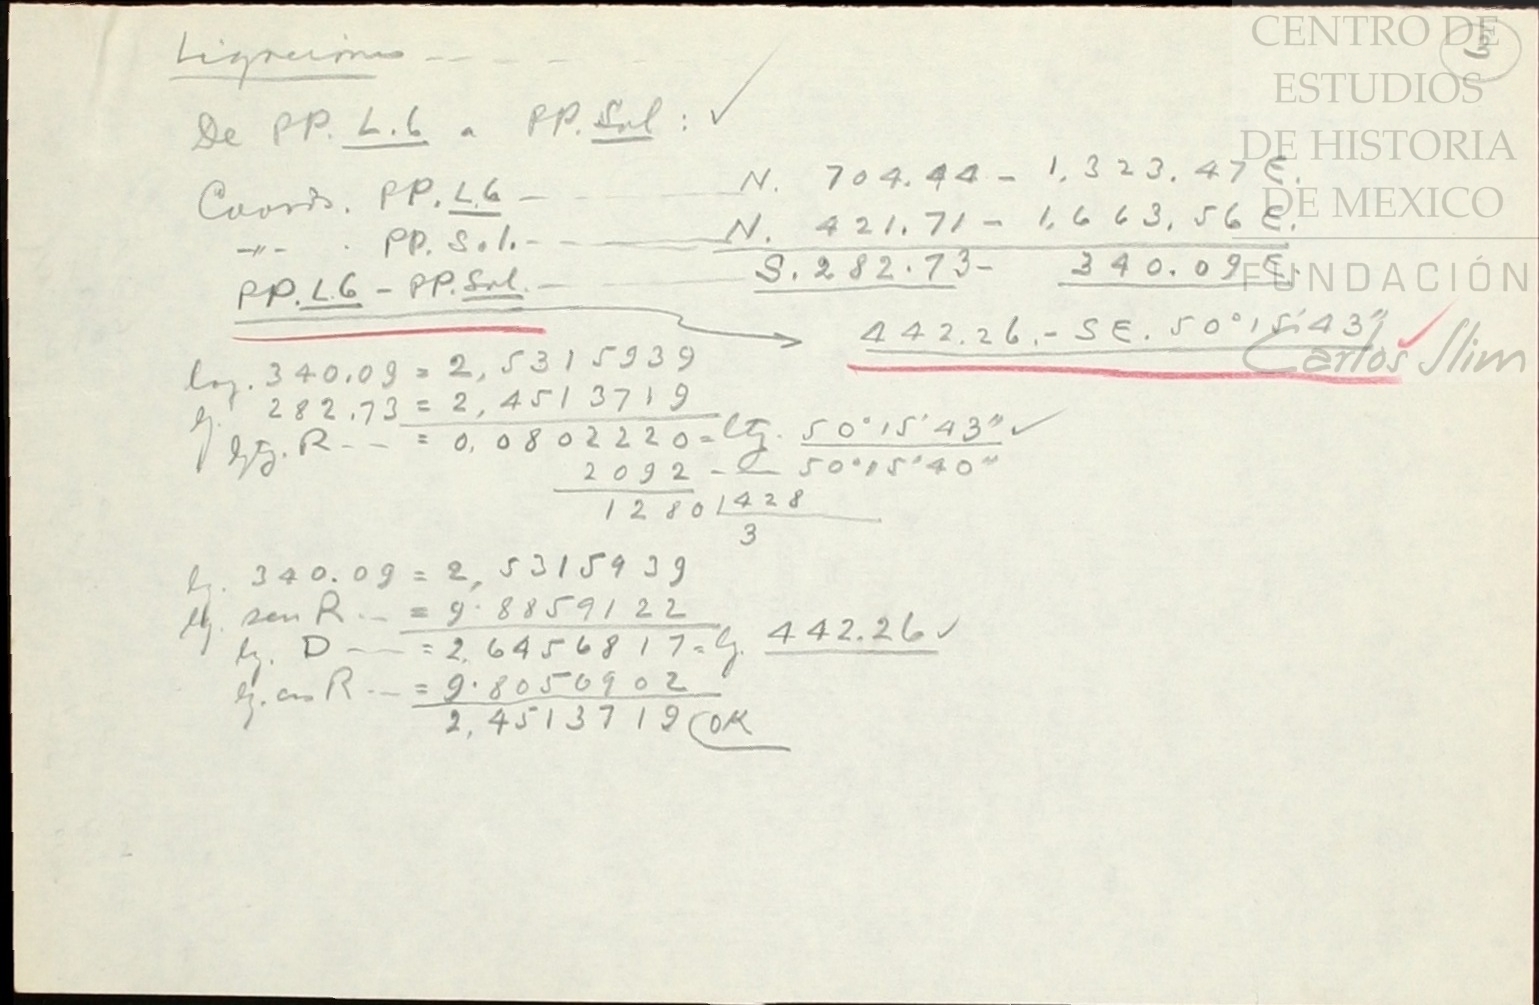 Ligaciones - - -
De PP. L.6 a PP. Sol : ✓
Coords. PP. L6 - N. 704.44 - 1,323.47 E.
-"- . PP. Sol. - N. 421.71 - 1,663.56 E.
PP. L6 - PP. Sol. - S. 282.73 - 340.09 E.
442.26. - SE. 50°15'43" ✓
log. 340.09 = 2,5315939
lg. 282.73 = 2,4513719
lg tg. R - - = 0,0802220 = ltg. 50°15'43" ✓
2092 - 50°15'40"
1280 / 428
3
lg. 340.09 = 2,5315939
lg. sen R -- = 9.8859122
lg. D -- = 2,6456817 = lg. 442.26 ✓
lg. cos R -- = 9.8056902
2,4513719 OK
CENTRO DE
ESTUDIOS
DE HISTORIA
DE MEXICO
FUNDACIÓN
Carlos Slim